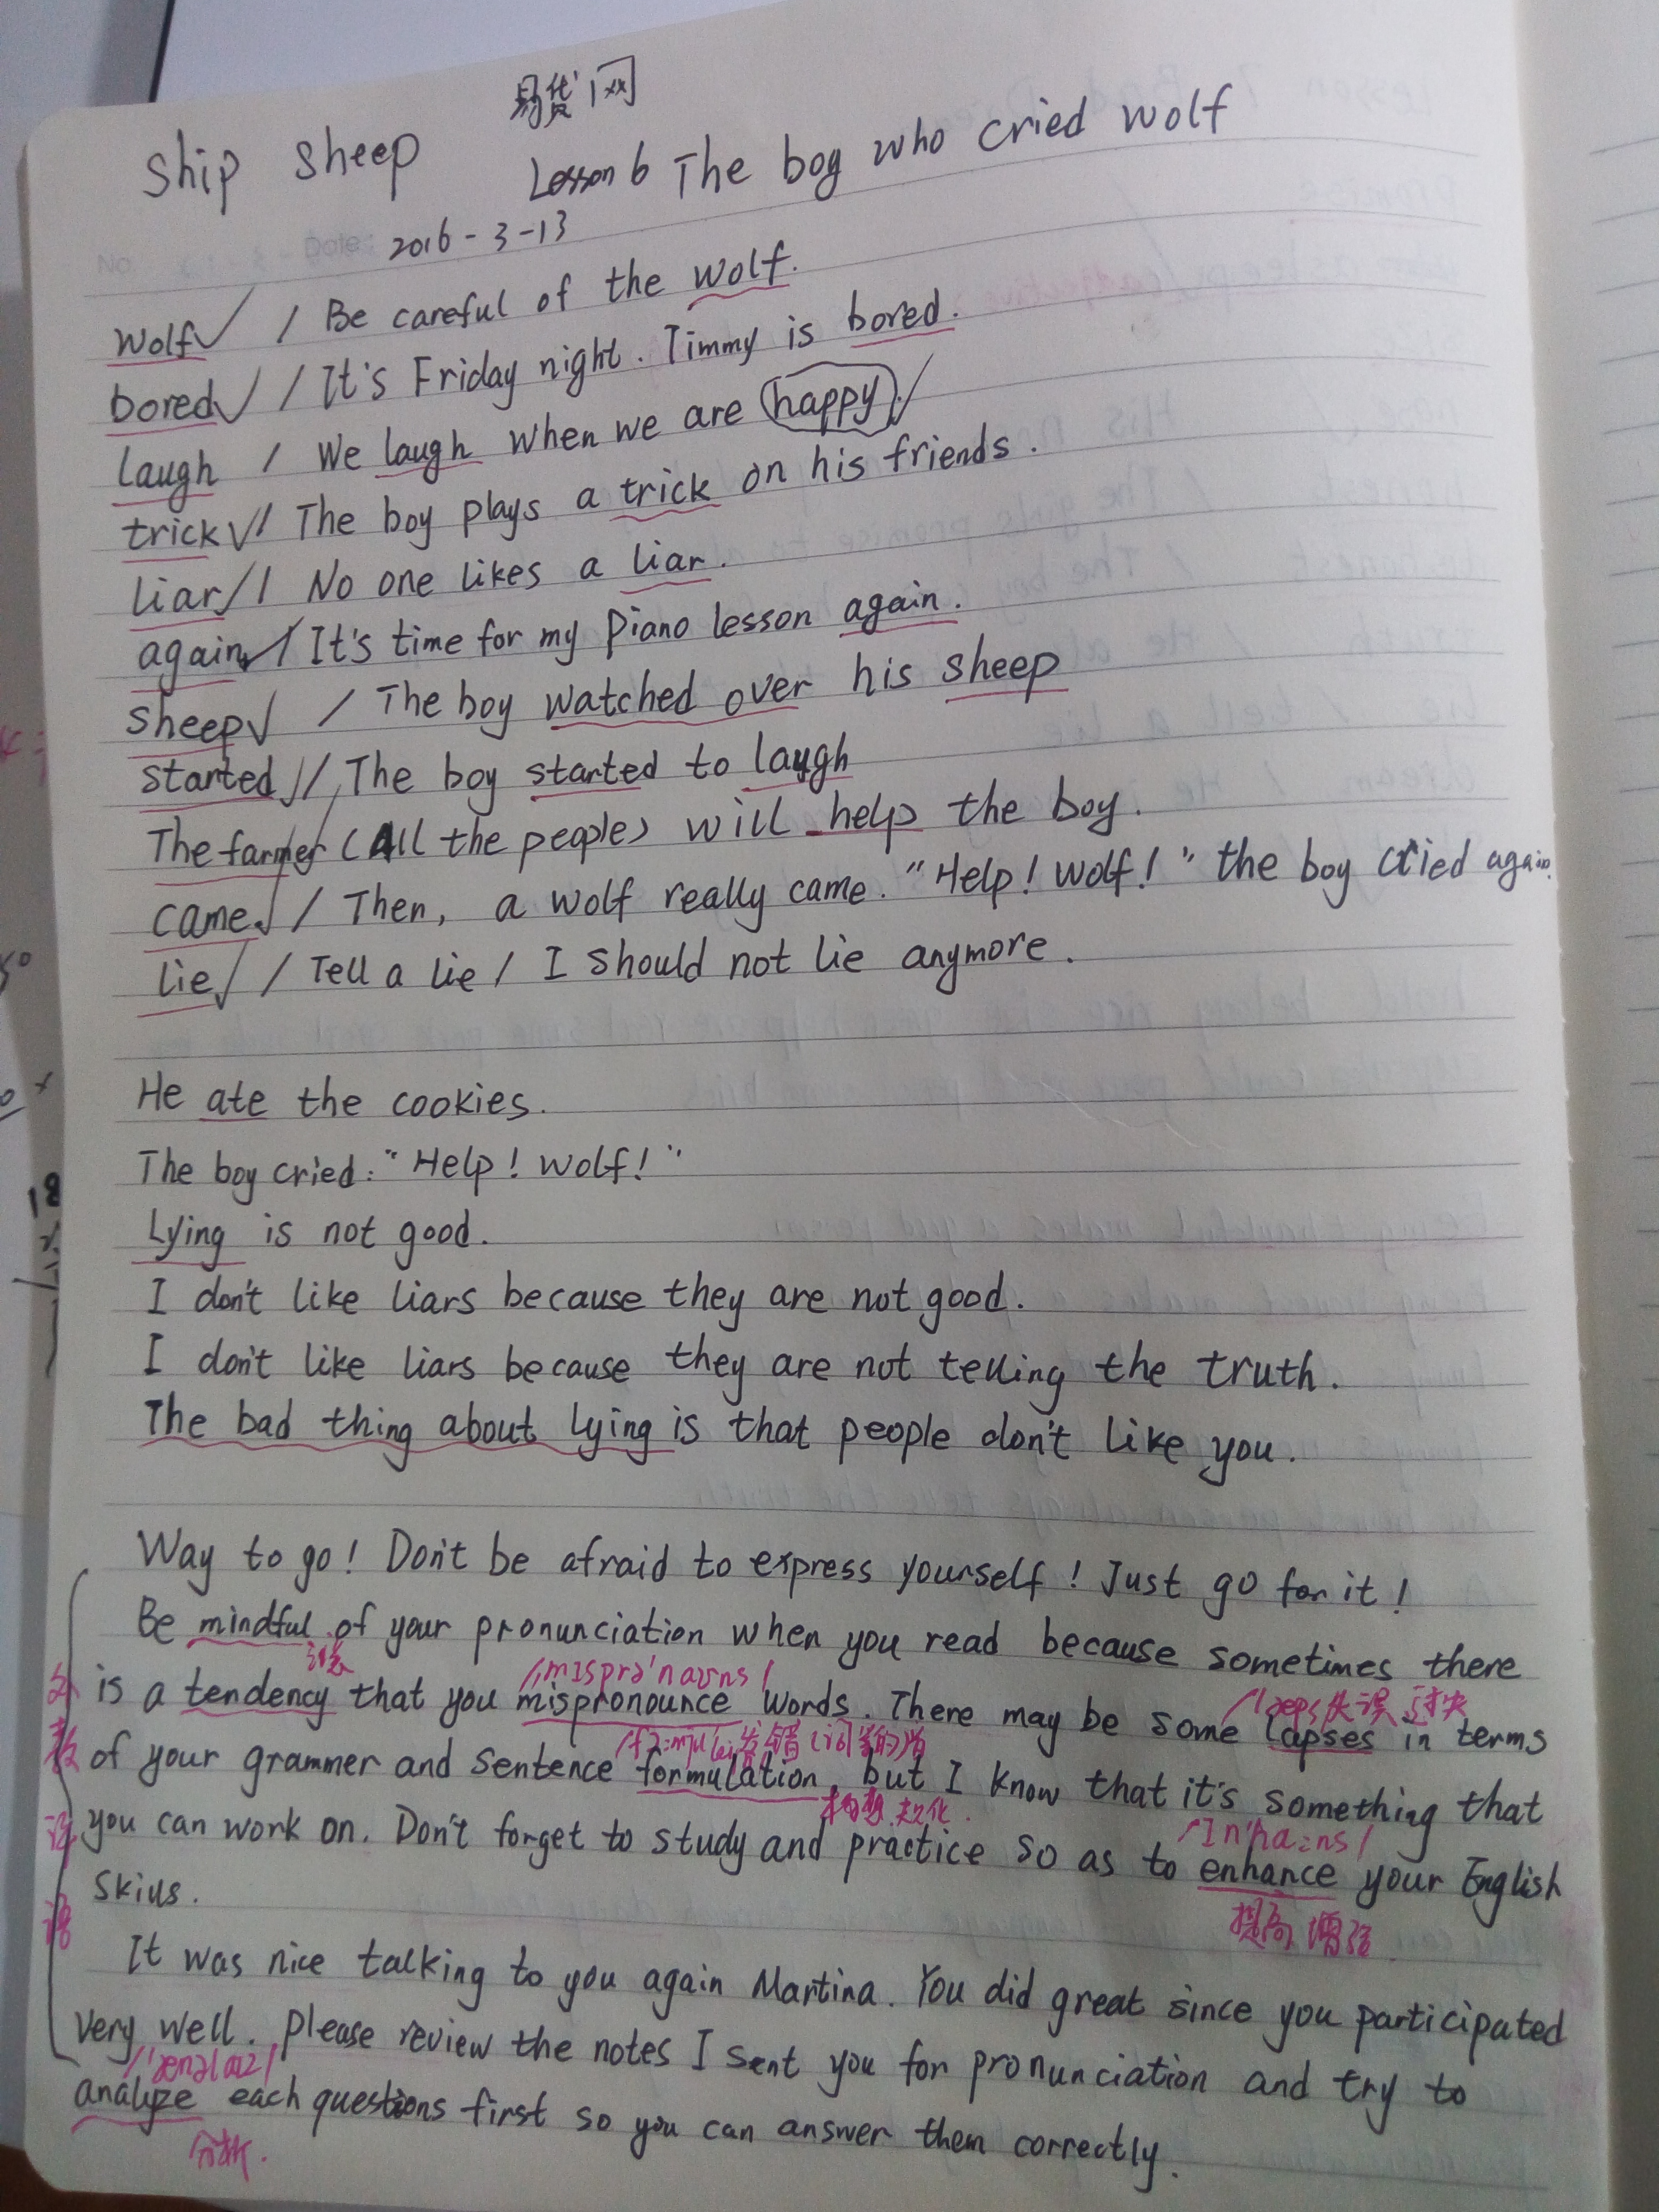 易货网
Ship sheep Lesson 6 The boy who cried wolf
No. Date: 2016-3-13
wolf✓ / Be careful of the wolf.
bored✓ / It's Friday night. Timmy is bored.
laugh / We laugh when we are happy.✓
trick✓/ The boy plays a trick on his friends.
liar/✓ No one likes a liar.
again✓/ It's time for my piano lesson again.
sheep✓ / The boy watched over his sheep
started✓/ The boy started to laugh
The farmer (All the people) will help the boy.
came.✓ / Then, a wolf really came. "Help! Wolf!" the boy cried again.
lie✓ / Tell a lie / I should not lie anymore.
He ate the cookies.
The boy cried: "Help! Wolf!"
Lying is not good.
I don't like liars because they are not good.
I don't like liars because they are not telling the truth.
The bad thing about lying is that people don't like you.
Way to go! Don't be afraid to express yourself! Just go for it!
Be mindful of your pronunciation when you read because sometimes there
/ˌmɪsprə'naʊns/
is a tendency that you mispronounce words. There may be some lapses in terms
/læps/ 失误 过失
of your grammer and sentence formulation, but I know that it's something that
构想 规化
you can work on. Don't forget to study and practice so as to enhance your English
/ɪn'hɑːns/
skills.
提高 增强
It was nice talking to you again Martina. You did great since you participated
very well. Please review the notes I sent you for pronunciation and try to
/'ænəlaɪz/
analyze each questions first so you can answer them correctly.
分析.